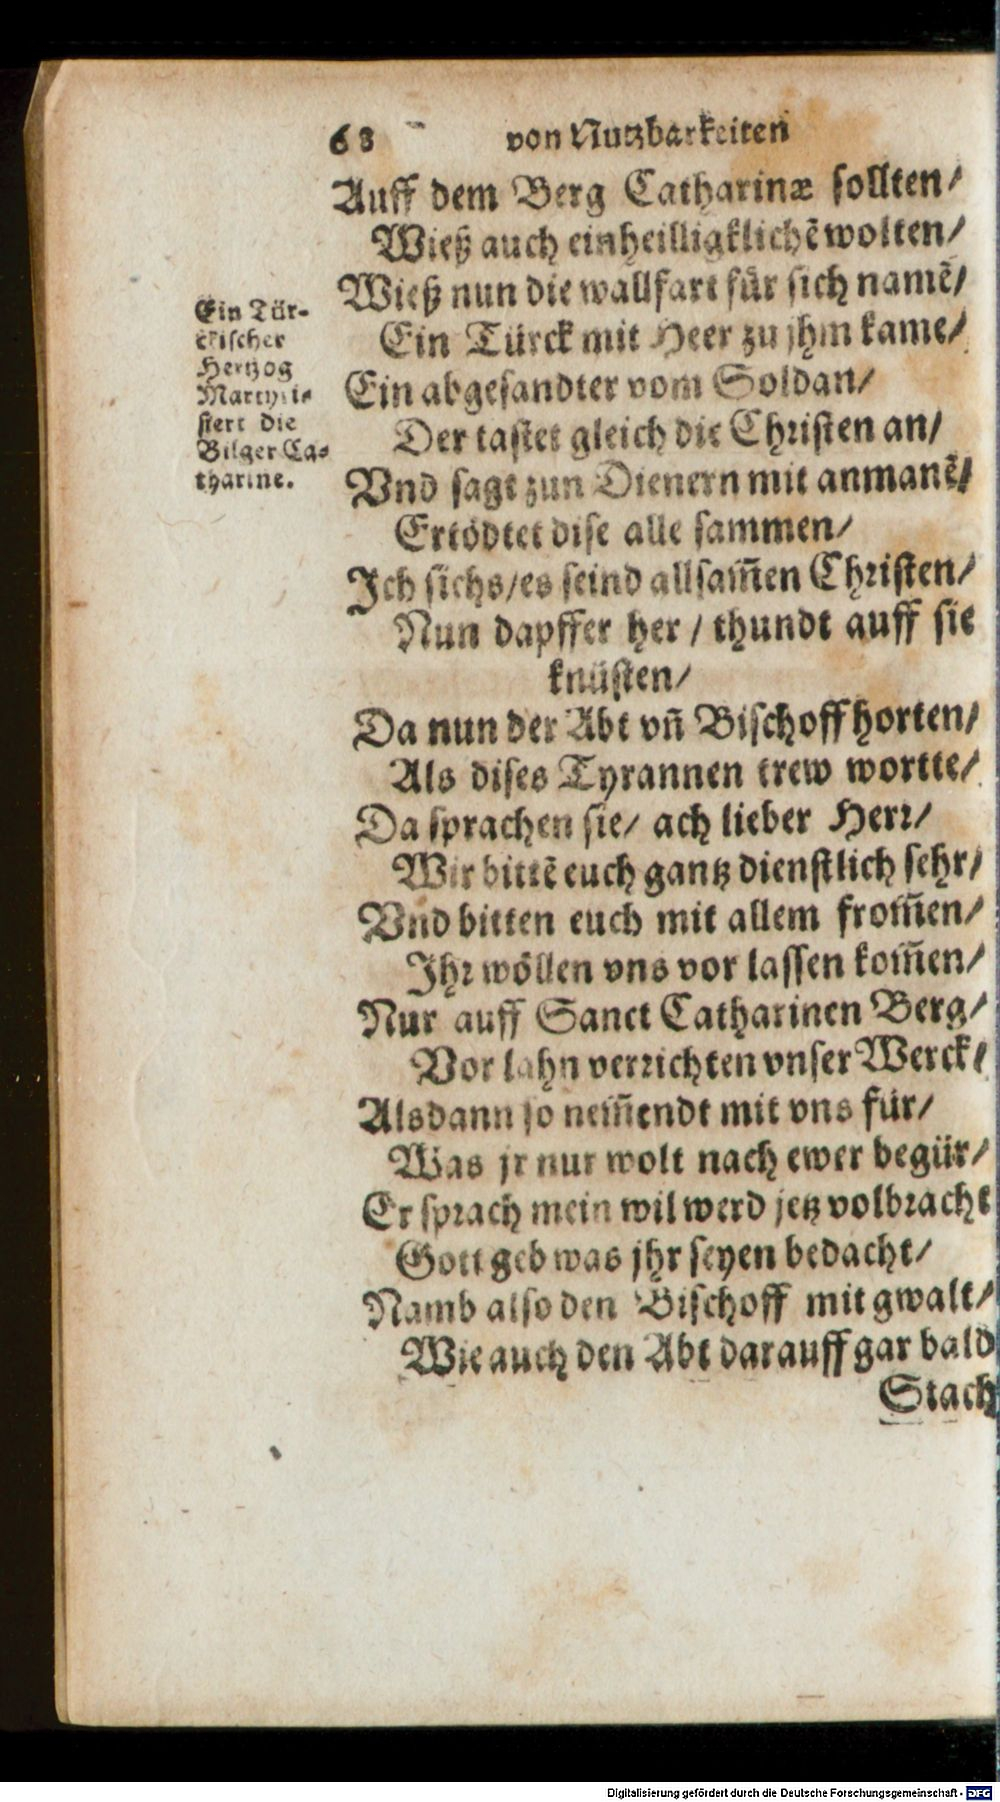 68 von Nutzbarkeiten
Auff dem Berg Catharinæ sollten/
Wieß auch einheilligklichẽ wolten/
Wieß nun die wallfart für sich namẽ/
Ein Türck mit Heer zu jhm kame/
Ein abgesandter vom Soldan/
Der tastet gleich die Christen an/
Vnd sagt zun Dienern mit anmanẽ/
Ertödtet dise alle sammen/
Jch sichs/es seind allsam̃en Christen/
Nun dapffer her / thundt auff sie
knüsten/
Da nun der Abt vñ Bischoff horten/
Als dises Tyrannen trew wortte/
Da sprachen sie/ ach lieber Herr/
Wir bittẽ euch gantz dienstlich sehr/
Vnd bitten euch mit allem from̃en/
Jhr wöllen vns vor lassen kom̃en/
Nur auff Sanct Catharinen Berg/
Vor lahn verrichten vnser Werck/
Alsdann so nem̃endt mit vns für/
Was jr nur wolt nach ewer begür/
Er sprach mein wil werd jetz volbracht
Gott geb was jhr seyen bedacht/
Namb also den Bischoff mit gwalt/
Wie auch den Abt darauff gar bald
Stach
Ein Tür-
ckischer
Hertzog
Martyri-
siert die
Bilger Ca-
tharine.
Digitalisierung gefördert durch die Deutsche Forschungsgemeinschaft - DFG